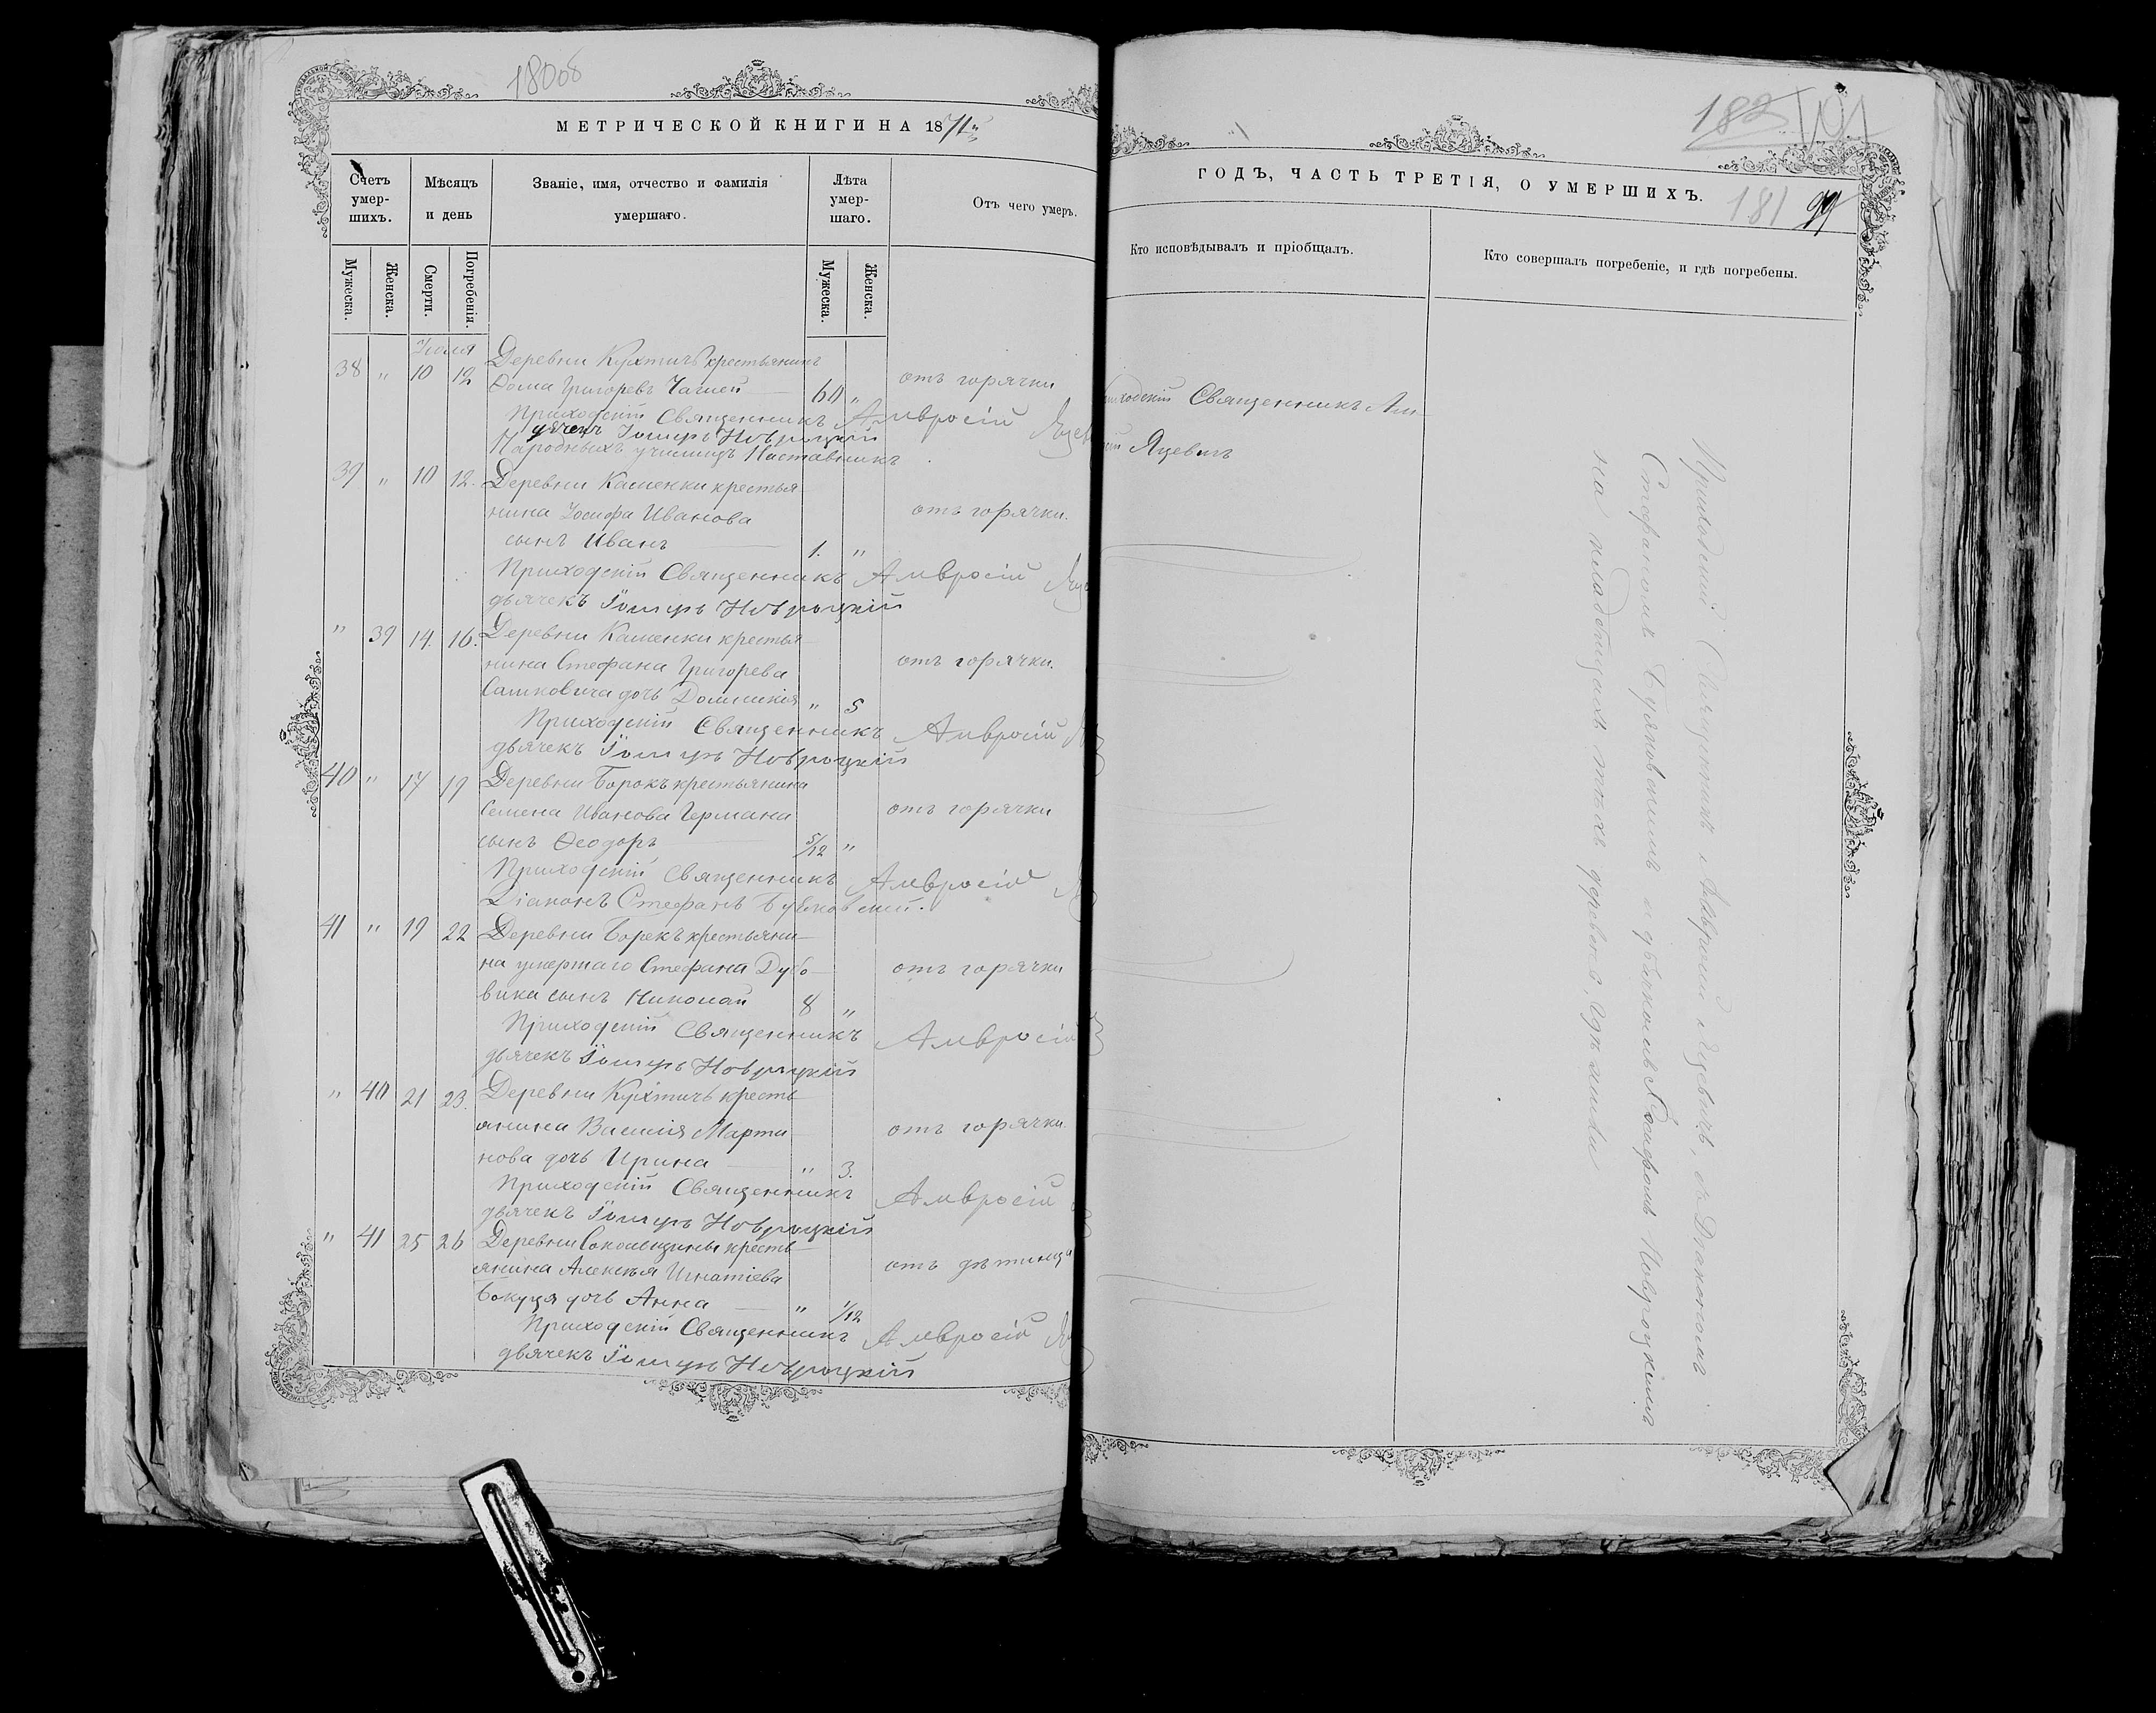 18008
МЕТРИЧЕСКОЙ КНИГИ НА 1871й
Счетъ умер-шихъ.
Мѣсяцъ и день
Званіе, имя, отчество и фамилія умершаго.
Лѣта умер-шаго.
Отъ чего умеръ.
Мужеска.
Женска.
Смерти.
Погребенія.
Мужеска.
Женска.
Іюля
38 " 10 12 Деревни Кухтичъ крестьянинъ
Ѳома Григоревъ 60 " отъ горячки
Приходскій Священникъ Амвросій
дьячекъ Іосифъ Новроцкій
Народныхъ училищъ Наставникъ
39 " 10 12. Деревни Каменки крестья-
нина Іосифа Иванова отъ горячки.
сынъ Иванъ 1. "
Приходскій Священникъ Амвросій
дьячекъ Іосифъ Новроцкій
" 39 14. 16. Деревни Каменки крестья-
нина Стефана Григорева отъ горячки.
Сашковича дочь Домникія " 5
Приходскій Священникъ Амвросій
дьячекъ Іосифъ Новроцкій
40 " 17 19 Деревни Борокъ крестьянина
Семена Иванова Германа отъ горячки
сынъ Ѳеодоръ 5/12 "
Приходскій Священникъ Амвросій
Діаконъ Стефанъ
41 " 19 22 Деревни Борекъ крестьяни-
на умершаго Стефана Дубо- отъ горячки
вика сынъ Николай 8 "
Приходскій Священникъ Амвросій
дьячекъ Іосифъ Новроцкій
" 40 21 23. Деревни Кухтичъ кресть-
янина Василія Марти- отъ горячки.
нова дочь Ирина " 3.
Приходскій Священникъ Амвросій
дьячекъ Іосифъ Новроцкій
" 41 25 26 Деревни кресть-
янина Алексѣя Игнатіева отъ
Бокуця дочь Анна " 1/12
Приходскій Священникъ Амвросій
дьячекъ Іосифъ Новроцкій
182
181 99
ГОДЪ, ЧАСТЬ ТРЕТІЯ, О УМЕРШИХЪ.
Кто исповѣдывалъ и пріобщалъ.
Кто совершалъ погребеніе, и гдѣ погребены.
Священникъ Ам-
Яцевичъ
Приходскій Священникъ Амвросій Яцевичъ, съ Діакономъ
Стефаномъ и дьячкомъ Іосифомъ Новроцкимъ
на кладбищахъ тѣхъ деревень, гдѣ жили